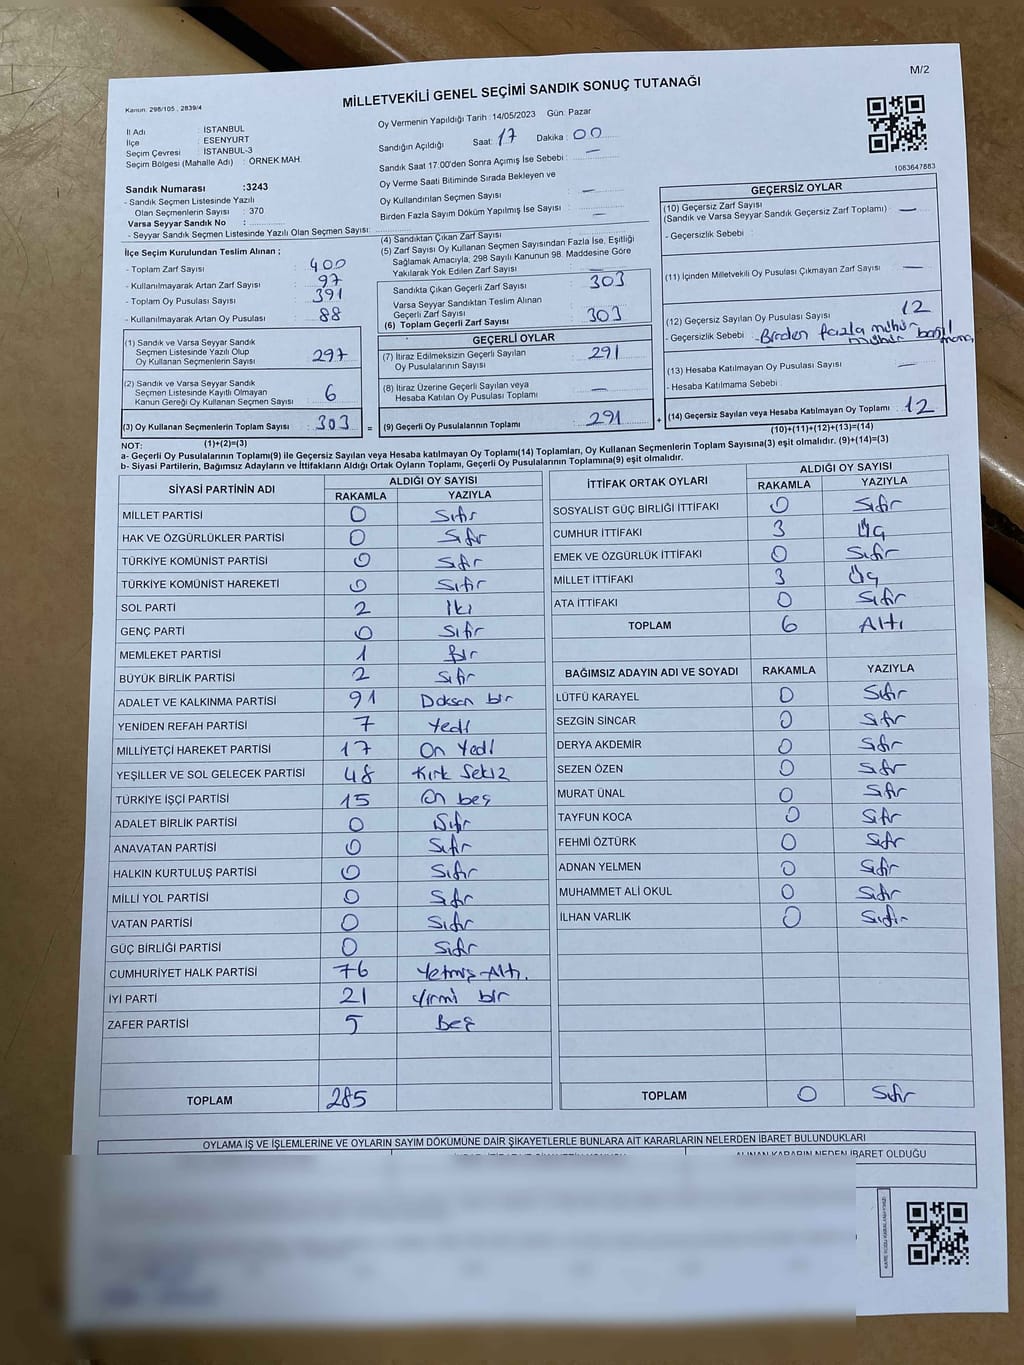 M/2
Kanun: 298/105 , 2839/4
MİLLETVEKİLİ GENEL SEÇİMİ SANDIK SONUÇ TUTANAĞI
İl Adı : İSTANBUL
İlçe : ESENYURT
Seçim Çevresi : İSTANBUL-3
Seçim Bölgesi (Mahalle Adı) : ÖRNEK MAH.
Sandık Numarası :3243
- Sandık Seçmen Listesinde Yazılı
Olan Seçmenlerin Sayısı : 370
Varsa Seyyar Sandık No :
- Seyyar Sandık Seçmen Listesinde Yazılı Olan Seçmen Sayısı:
Oy Vermenin Yapıldığı Tarih :14/05/2023 Gün: Pazar
Sandığın Açıldığı Saat: 17 Dakika : 00
Sandık Saat 17.00'den Sonra Açımış İse Sebebi : —
Oy Verme Saati Bitiminde Sırada Bekleyen ve
Oy Kullandırılan Seçmen Sayısı : —
Birden Fazla Sayım Döküm Yapılmış İse Sayısı : —
1063647883
İlçe Seçim Kurulundan Teslim Alınan ;
- Toplam Zarf Sayısı : 400
- Kullanılmayarak Artan Zarf Sayısı : 97
- Toplam Oy Pusulası Sayısı : 391
- Kullanılmayarak Artan Oy Pusulası : 88
(1) Sandık ve Varsa Seyyar Sandık
Seçmen Listesinde Yazılı Olup
Oy Kullanan Seçmenlerin Sayısı : 297
(2) Sandık ve Varsa Seyyar Sandık
Seçmen Listesinde Kayıtlı Olmayan
Kanun Gereği Oy Kullanan Seçmen Sayısı : 6
(3) Oy Kullanan Seçmenlerin Toplam Sayısı : 303
(1)+(2)=(3)
(4) Sandıktan Çıkan Zarf Sayısı :
(5) Zarf Sayısı Oy Kullanan Seçmen Sayısından Fazla İse, Eşitliği
Sağlamak Amacıyla; 298 Sayılı Kanunun 98. Maddesine Göre
Yakılarak Yok Edilen Zarf Sayısı : —
Sandıkta Çıkan Geçerli Zarf Sayısı : 303
Varsa Seyyar Sandıktan Teslim Alınan
Geçerli Zarf Sayısı :
(6) Toplam Geçerli Zarf Sayısı : 303
GEÇERLİ OYLAR
(7) İtiraz Edilmeksizin Geçerli Sayılan
Oy Pusulalarının Sayısı : 291
(8) İtiraz Üzerine Geçerli Sayılan veya
Hesaba Katılan Oy Pusulası Toplamı : —
= (9) Geçerli Oy Pusulalarının Toplamı : 291
GEÇERSİZ OYLAR
(10) Geçersiz Zarf Sayısı
(Sandık ve Varsa Seyyar Sandık Geçersiz Zarf Toplamı) : —
- Geçersizlik Sebebi :
(11) İçinden Milletvekili Oy Pusulası Çıkmayan Zarf Sayısı : —
(12) Geçersiz Sayılan Oy Pusulası Sayısı : 12
- Geçersizlik Sebebi : Birden fazla mühür
mühür
(13) Hesaba Katılmayan Oy Pusulası Sayısı : —
- Hesaba Katılmama Sebebi :
+ (14) Geçersiz Sayılan veya Hesaba Katılmayan Oy Toplamı : 12
(10)+(11)+(12)+(13)=(14)
NOT:
a- Geçerli Oy Pusulalarının Toplamı(9) ile Geçersiz Sayılan veya Hesaba katılmayan Oy Toplamı(14) Toplamları, Oy Kullanan Seçmenlerin Toplam Sayısına(3) eşit olmalıdır. (9)+(14)=(3)
b- Siyasi Partilerin, Bağımsız Adayların ve İttifakların Aldığı Ortak Oyların Toplamı, Geçerli Oy Pusulalarının Toplamına(9) eşit olmalıdır.
SİYASİ PARTİNİN ADI ALDIĞI OY SAYISI
RAKAMLA YAZIYLA
MİLLET PARTİSİ 0 Sıfır
HAK VE ÖZGÜRLÜKLER PARTİSİ 0 Sıfır
TÜRKİYE KOMÜNİST PARTİSİ 0 Sıfır
TÜRKİYE KOMÜNİST HAREKETİ 0 Sıfır
SOL PARTİ 2 İki
GENÇ PARTİ 0 Sıfır
MEMLEKET PARTİSİ 1 Bir
BÜYÜK BİRLİK PARTİSİ 2 Sıfır
ADALET VE KALKINMA PARTİSİ 91 Doksan bir
YENİDEN REFAH PARTİSİ 7 Yedi
MİLLİYETÇİ HAREKET PARTİSİ 17 On Yedi
YEŞİLLER VE SOL GELECEK PARTİSİ 48 Kırk Sekiz
TÜRKİYE İŞÇİ PARTİSİ 15 On beş
ADALET BİRLİK PARTİSİ 0 Sıfır
ANAVATAN PARTİSİ 0 Sıfır
HALKIN KURTULUŞ PARTİSİ 0 Sıfır
MİLLİ YOL PARTİSİ 0 Sıfır
VATAN PARTİSİ 0 Sıfır
GÜÇ BİRLİĞİ PARTİSİ 0 Sıfır
CUMHURİYET HALK PARTİSİ 76 Yetmiş-Altı.
İYİ PARTİ 21 Yirmi bir
ZAFER PARTİSİ 5 Beş
TOPLAM 285
İTTİFAK ORTAK OYLARI ALDIĞI OY SAYISI
RAKAMLA YAZIYLA
SOSYALİST GÜÇ BİRLİĞİ İTTİFAKI 0 Sıfır
CUMHUR İTTİFAKI 3 Üç
EMEK VE ÖZGÜRLÜK İTTİFAKI 0 Sıfır
MİLLET İTTİFAKI 3 Üç
ATA İTTİFAKI 0 Sıfır
TOPLAM 6 Altı
BAĞIMSIZ ADAYIN ADI VE SOYADI RAKAMLA YAZIYLA
LÜTFÜ KARAYEL 0 Sıfır
SEZGİN SİNCAR 0 Sıfır
DERYA AKDEMİR 0 Sıfır
SEZEN ÖZEN 0 Sıfır
MURAT ÜNAL 0 Sıfır
TAYFUN KOCA 0 Sıfır
FEHMİ ÖZTÜRK 0 Sıfır
ADNAN YELMEN 0 Sıfır
MUHAMMET ALİ OKUL 0 Sıfır
İLHAN VARLIK 0 Sıfır
TOPLAM 0 Sıfır
OYLAMA İŞ VE İŞLEMLERİNE VE OYLARIN SAYIM DÖKÜMÜNE DAİR ŞİKAYETLERLE BUNLARA AİT KARARLARIN NELERDEN İBARET BULUNDUKLARI
ALINAN KARARIN NEDEN İBARET OLDUĞU